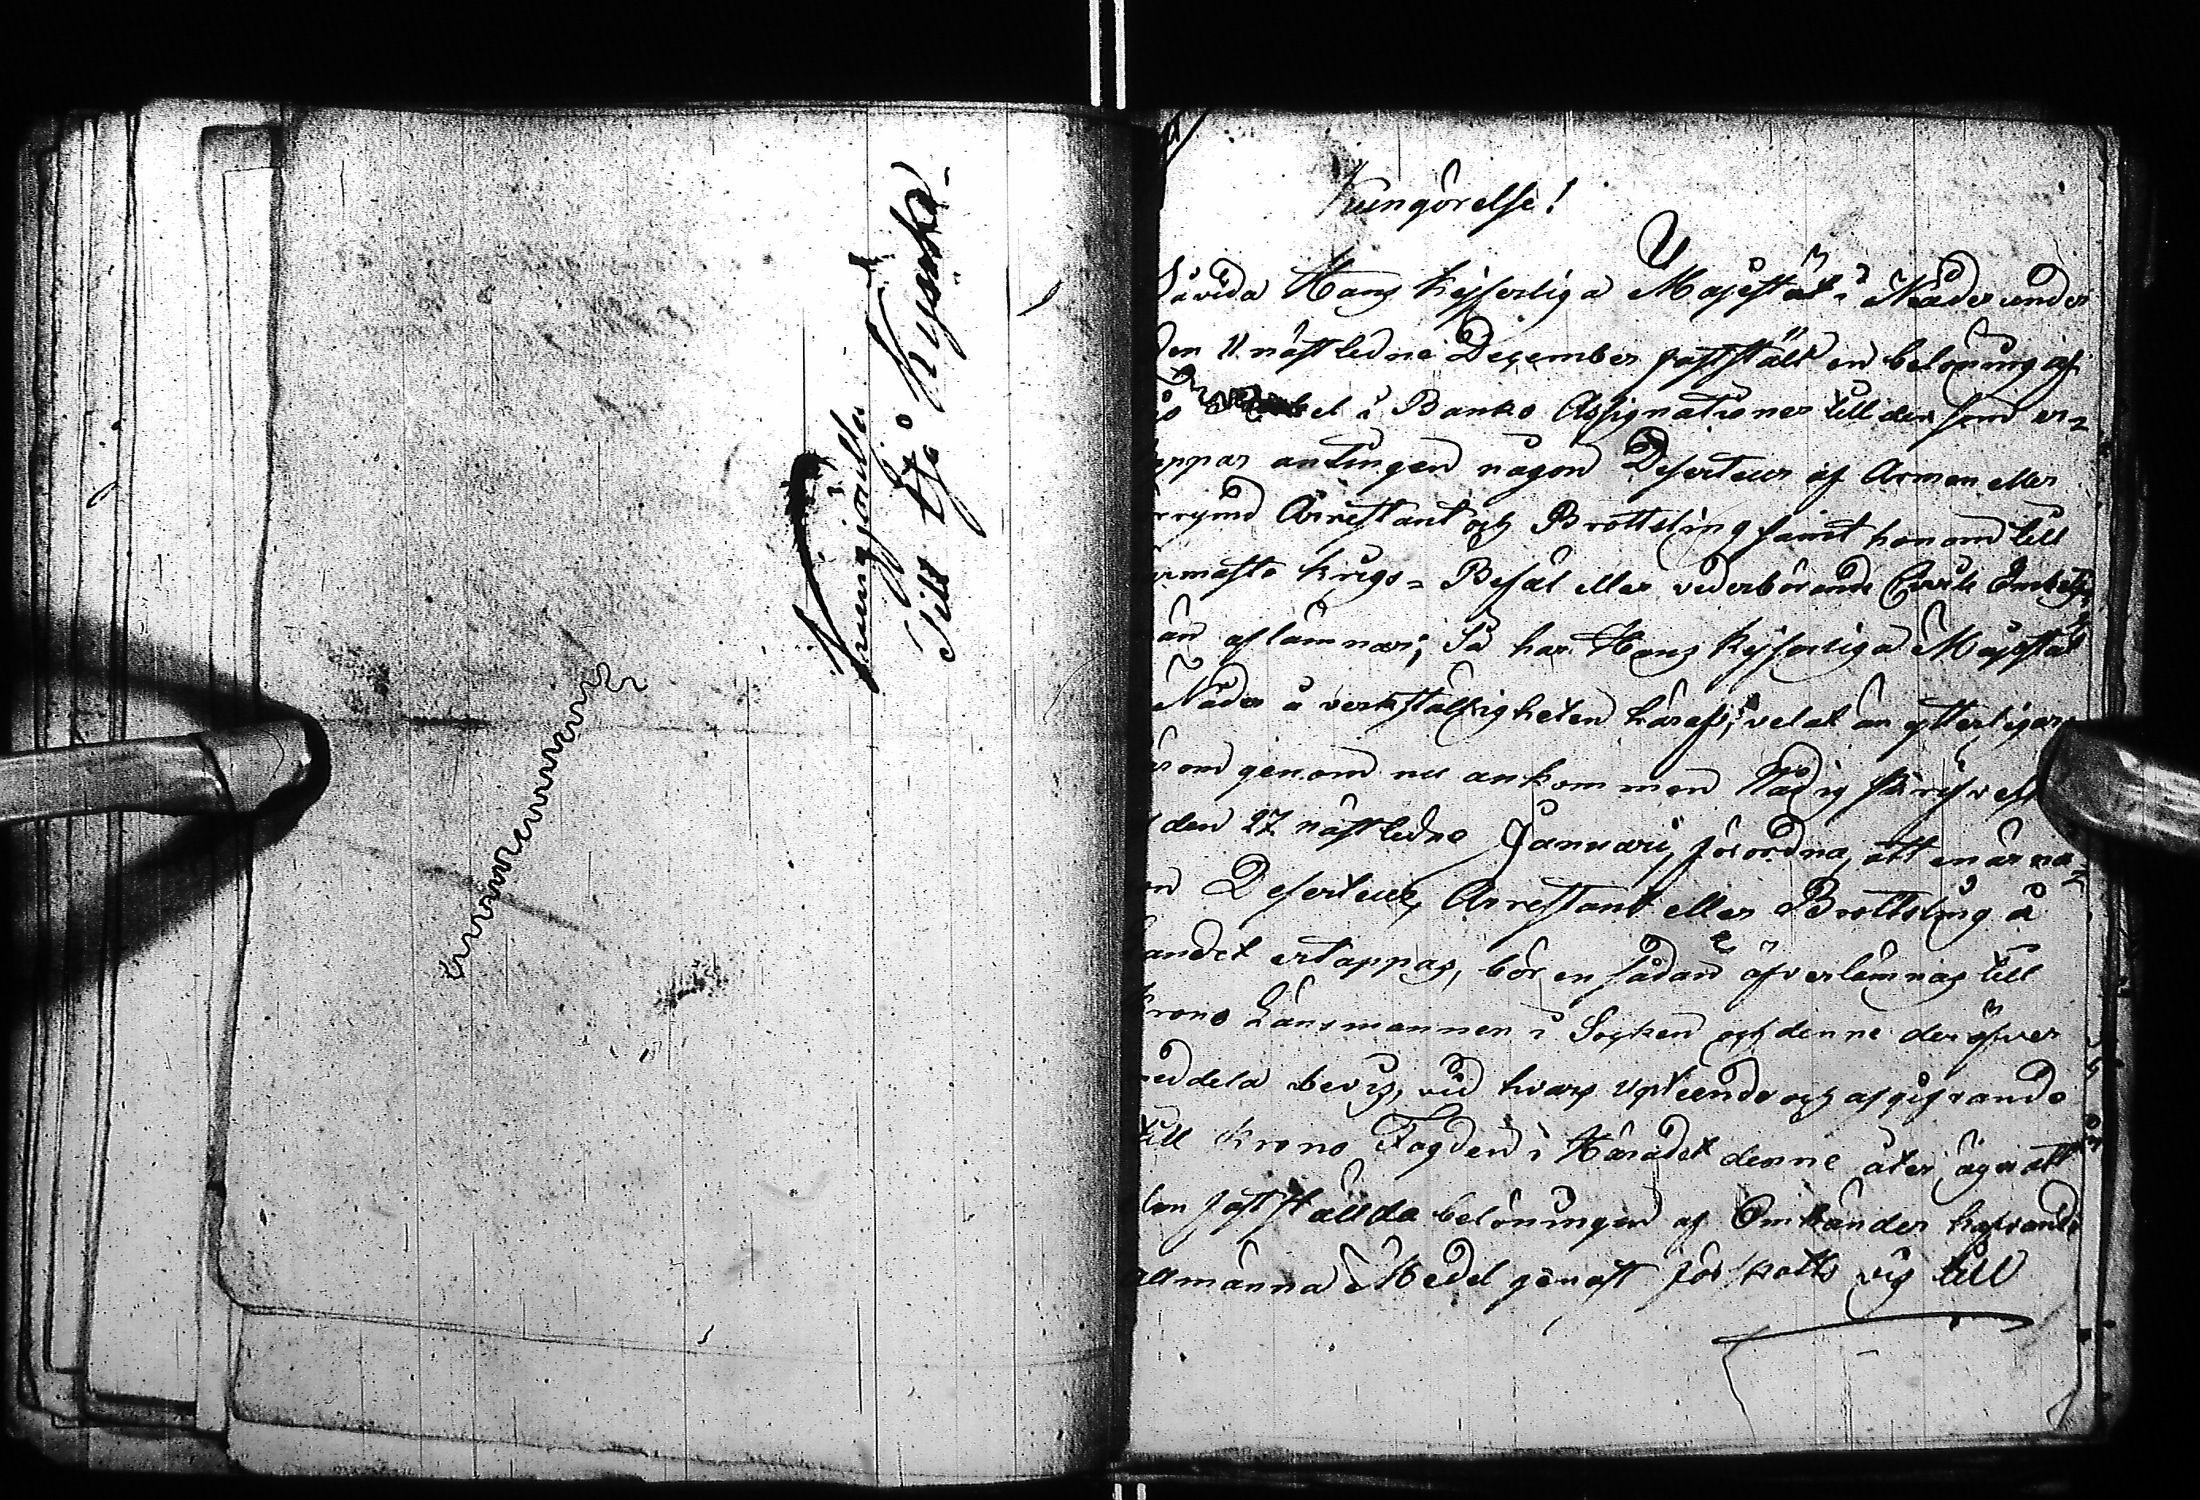 Kungörelse
Till Hysskå
Kungörelse!
Såvida Hans Kejserliga Majestät i Nåder under
den 11. nästledne December fastställt en belöning af
Rubel i Banko Assignationer till den som er-
tappar antingen någon Deserteur af Armen eller
förrymd Arrestant och Brottsling samt honom till
närmaste Krigs-Befäl eller vederbörande Civile Embets-
män aflämnar; Så har Hans Kejserliga Majestät
i Nåder å verkställigheten häraf, velat än ytterligare
härom genom nu ankommen Nådig skrifvelse
af den 27 nästledne Januarii, förordna, att en är nå-
gon Deserteur, Arrestant eller Brottsling å
Landet ertappas, bör en sådan öfverlämnas till
Krono Länsmannen i Socken och denne deröfver
meddela bevis, vid hvars upteende och afgifvande
till Krono Fogden i Häradet denne åter äger att
den fastställda belöningen af Omhänder hafvande
allmänna Medel genast förskotts vis till